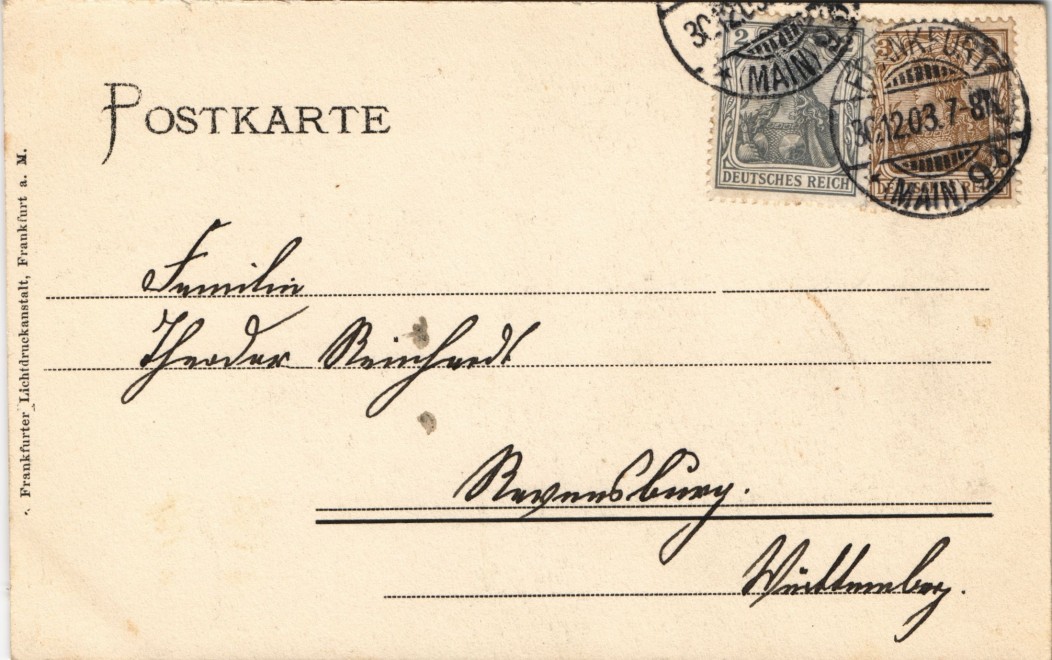 30.12.03
(MAIN) 9
2
3
FRANKFURT
30.12.03. 7-8N.
* (MAIN) 9
DEUTSCHES REICH
DEUTSCHES REICH
POSTKARTE
Frankfurter Lichtdruckanstalt, Frankfurt a. M.
Familie
Theodor Reinhardt
Ravensburg.
Württemberg.